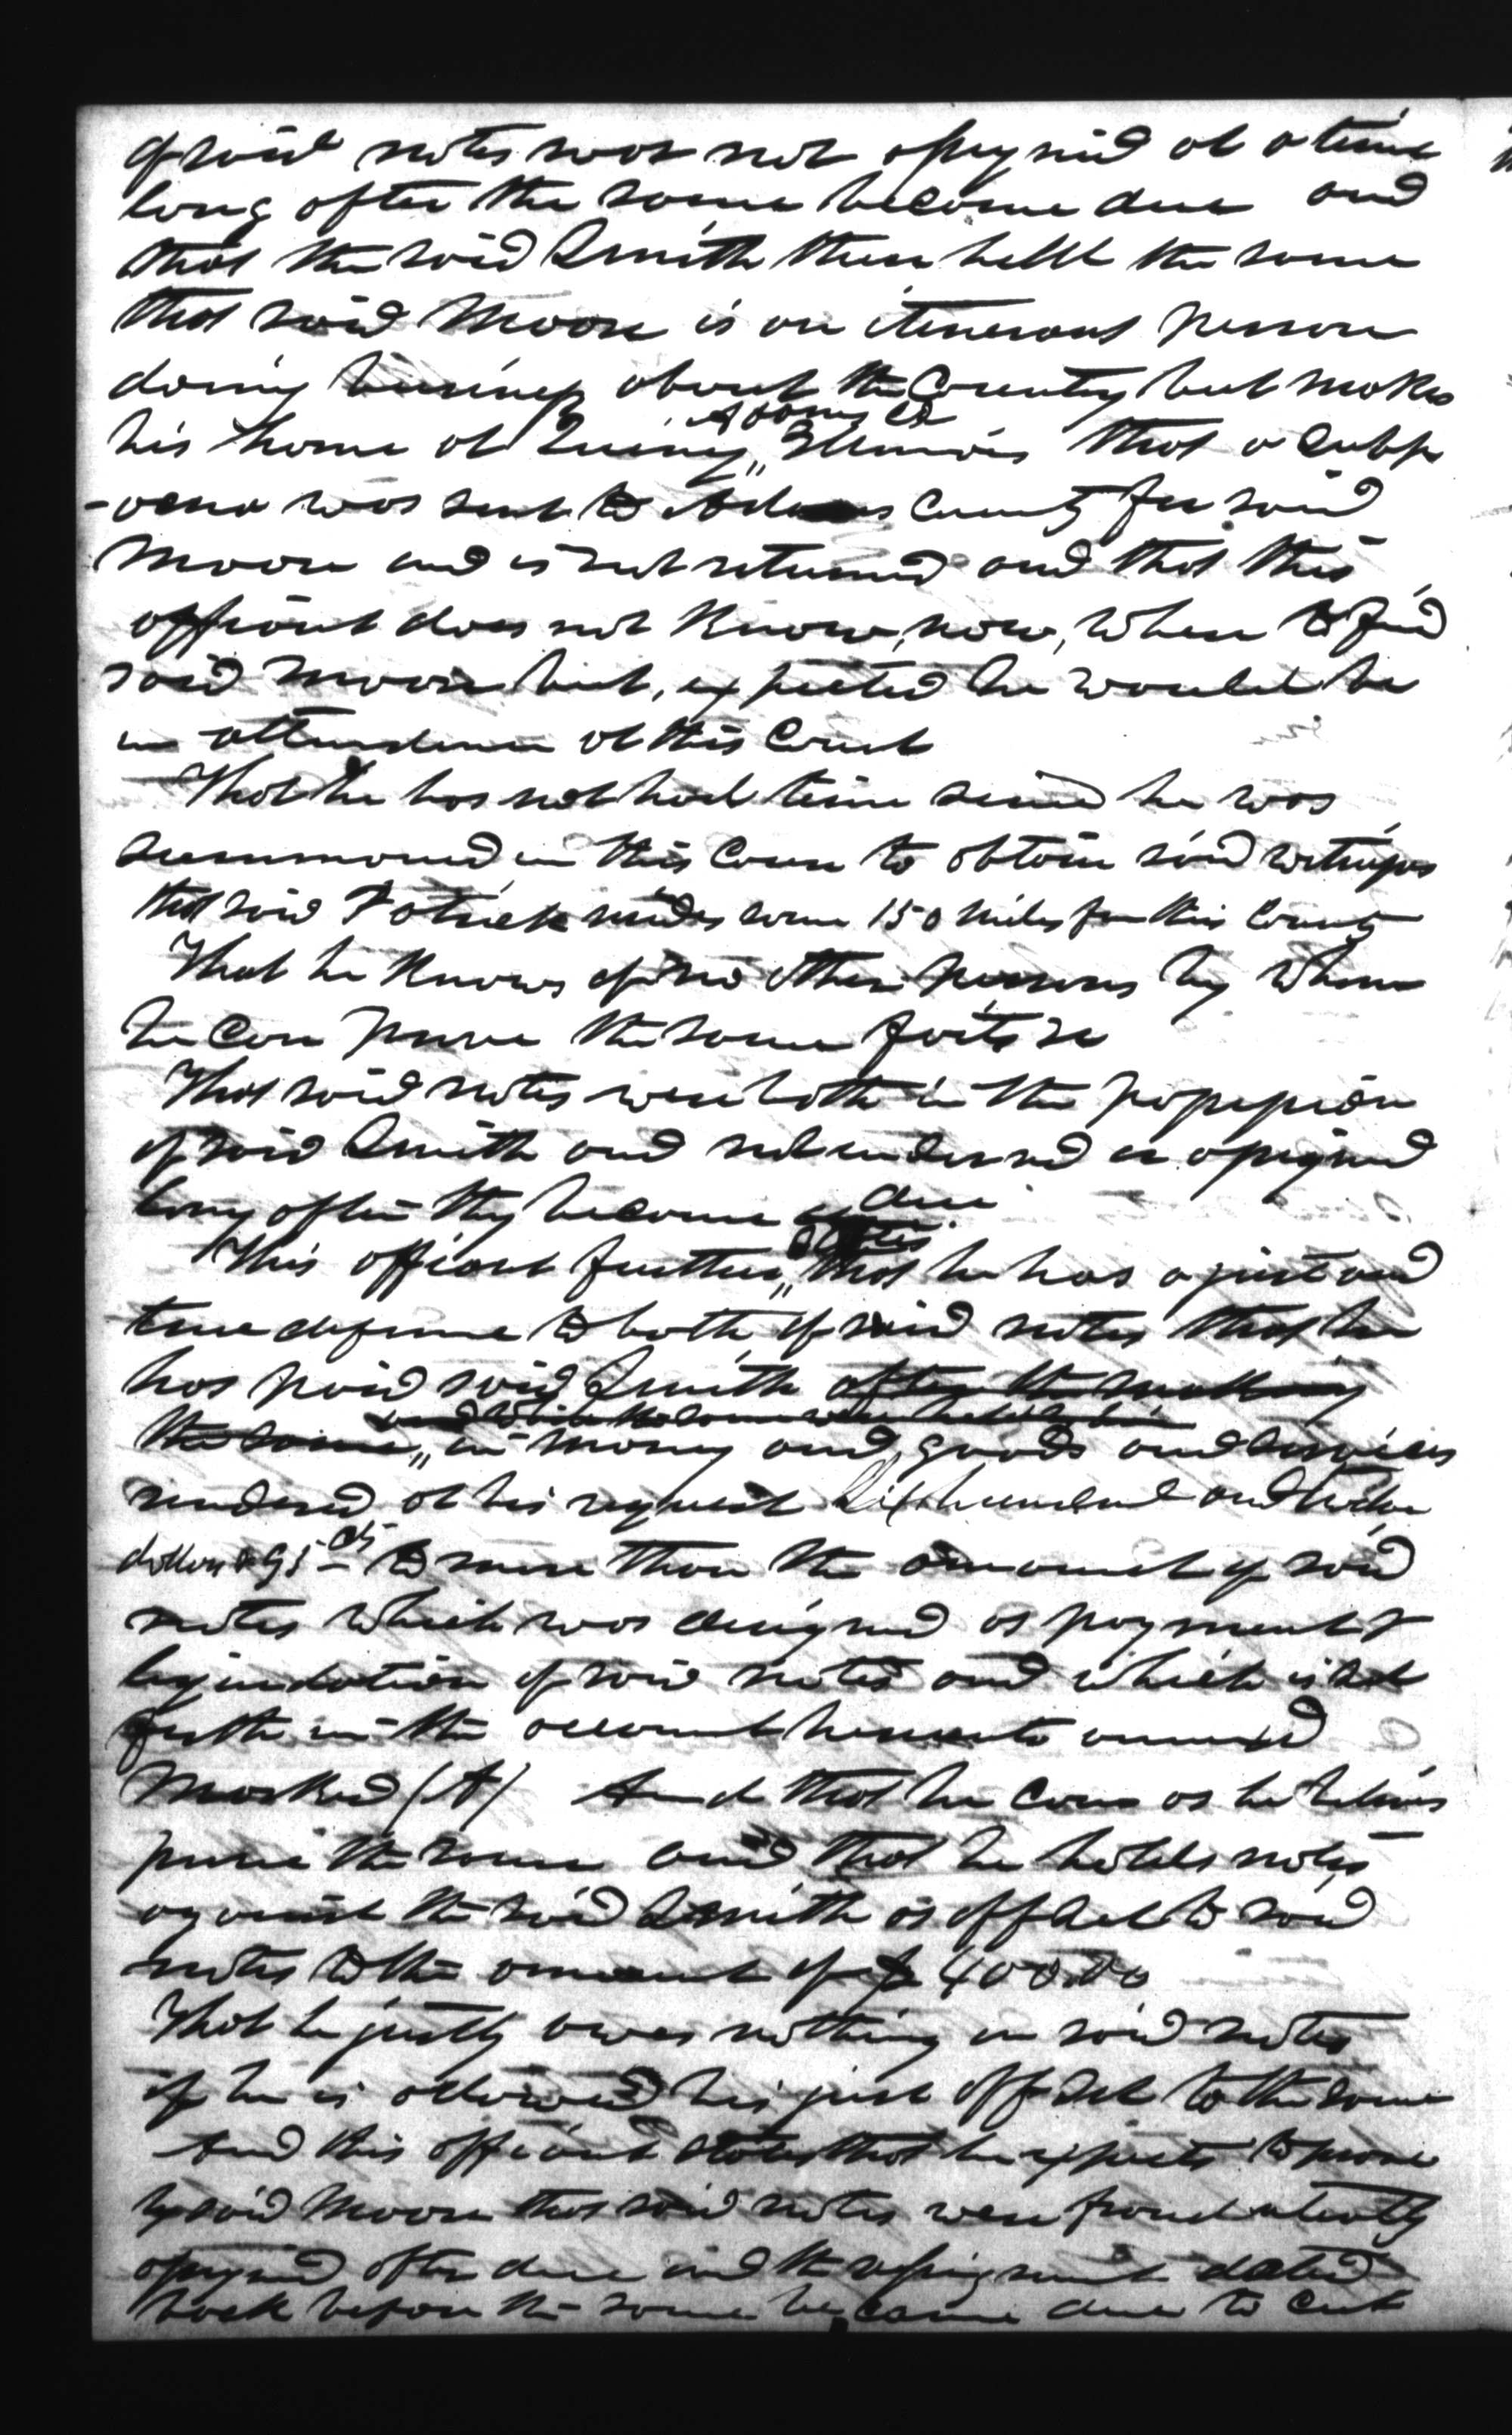 of said notes was not assigned at a time
long after the same become due and
that the said Smith then held the same
that said Moore is an itenerant person
doing business about the County but makes
his home at Quincy Adams Co Illinois that a subp
-oena was sent to Adams County for said
Moore and is not returned and that this
affiant does not know, now, where to find
said Moore but, expected he would be
in attendance at this Court
That he has not had time since he was
summoned in this Cause to obtain said witnesses
that said Patrick resides some 150 miles from this County
That he knows of no other persons by whom
he can prove the same facts
That said notes were both in the possession
of said Smith and not endorsed or assigned
long after they become due
This affiant further states that he has a just and
true defense to both of said notes that he
has paid said Smith after the making
the same and while the same were held by him in money and goods and services
rendered at his request Six hundred and twelve
dollars & 95 cts to more than the amount of said
notes which was designed as payment &
liquidation of said notes and which is set
forth in the account hereunto annexed
Marked (A) And that he can as he believes
prove the same and that he holds notes
against the said Smith as off set to said
notes to the amount of $ 400.00
That he justly owes nothing on said notes
if he is allowed his just off set to the same
And this affiant states that he expects to prove
by said Moore that said notes were fraudulently
assigned after due and the assignment dated
back before the same became due to cut